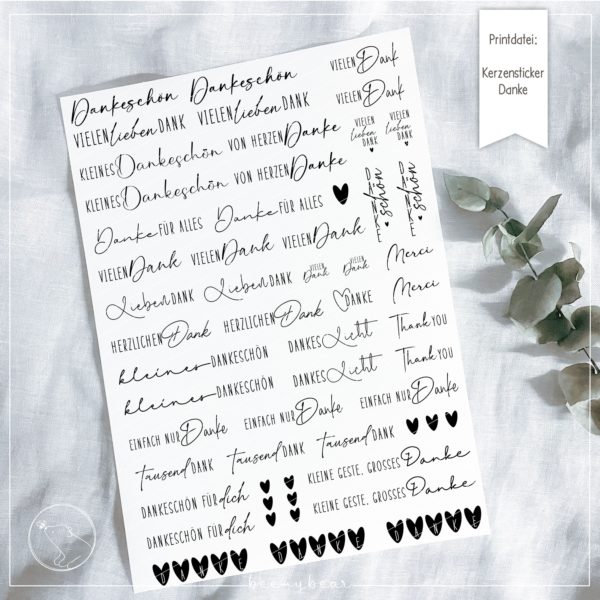 Printdatei:
Kerzensticker
Danke
Dankeschön Dankeschön
VIELEN Dank
VIELEN lieben DANK VIELEN lieben DANK
VIELEN Dank
KLEINES Dankeschön VON HERZEN Danke
VIELEN lieben DANK VIELEN lieben DANK
KLEINES Dankeschön VON HERZEN Danke
DANKE schön DANKE schön
Danke FÜR ALLES Danke FÜR ALLES
VIELEN Dank VIELEN Dank VIELEN Dank
Merci
Lieben DANK Lieben DANK VIELEN Dank VIELEN Dank
Merci
HERZLICHEN Dank HERZLICHEN Dank DANKE
kleines DANKESCHÖN DANKES Licht Thank YOU
kleines DANKESCHÖN DANKES Licht Thank YOU
EINFACH NUR Danke EINFACH NUR Danke EINFACH NUR Danke
tausend DANK tausend DANK tausend DANK
DANKESCHÖN FÜR dich KLEINE GESTE, GROSSES Danke
DANKESCHÖN FÜR dich KLEINE GESTE, GROSSES Danke
DANKE DANKE DANKE
beemybear